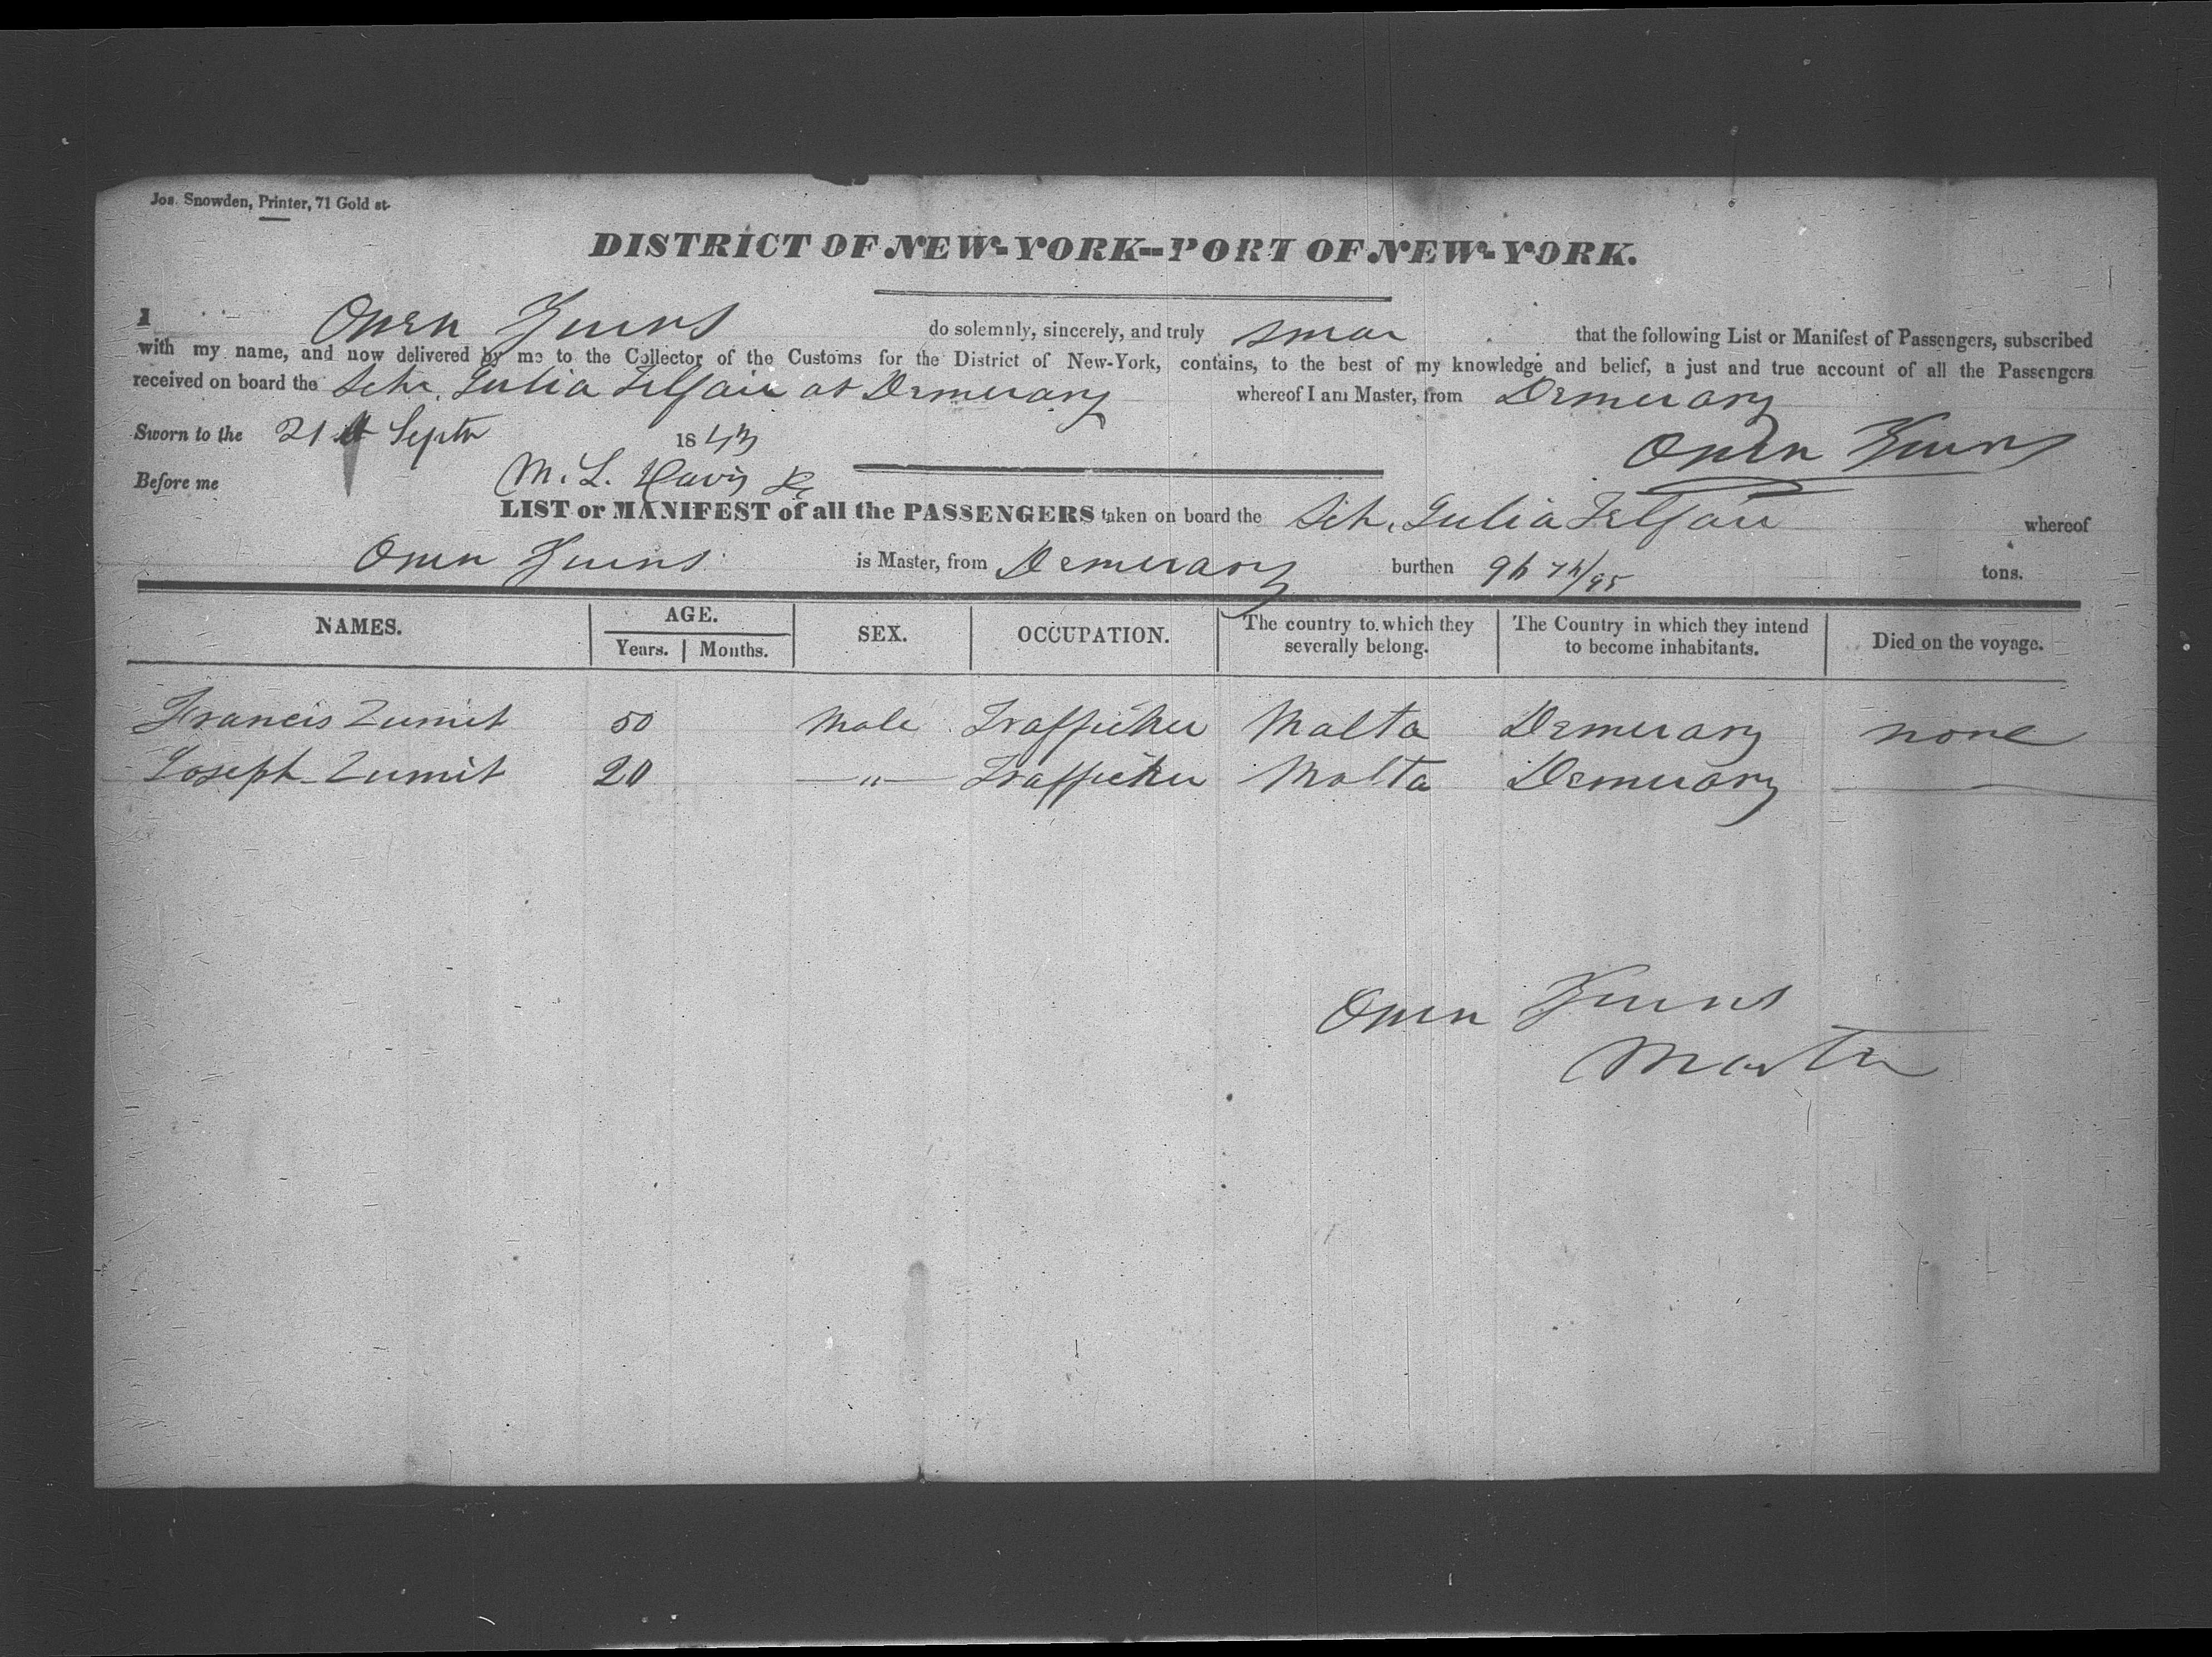 Jos. Snowden, Printer, 71 Gold st.
DISTRICT OF NEW-YORK--PORT OF NEW-YORK.
I Owen do solemnly, sincerely, and truly swear that the following List or Manifest of Passengers, subscribed
with my name, and now delivered by me to the Collector of the Customs for the District of New-York, contains, to the best of my knowledge and belief, a just and true account of all the Passengers
received on board the Schr. Julia Telfair at Demerary whereof I am Master, from Demerary
Sworn to the 21st Septr 1843
Owen
Before me M. L. Davis
LIST or MANIFEST of all the PASSENGERS taken on board the Sch. Julia Telfair whereof
Owen is Master, from Demerary burthen tons.
NAMES. AGE. SEX. OCCUPATION. The country to which they severally belong. The Country in which they intend to become inhabitants. Died on the voyage.
Years. Months.
Francis Zumit 50 Male Trafficker Malta Demerary none
Joseph Zumit 20 " Trafficker Malta Demerary
Owen
Master